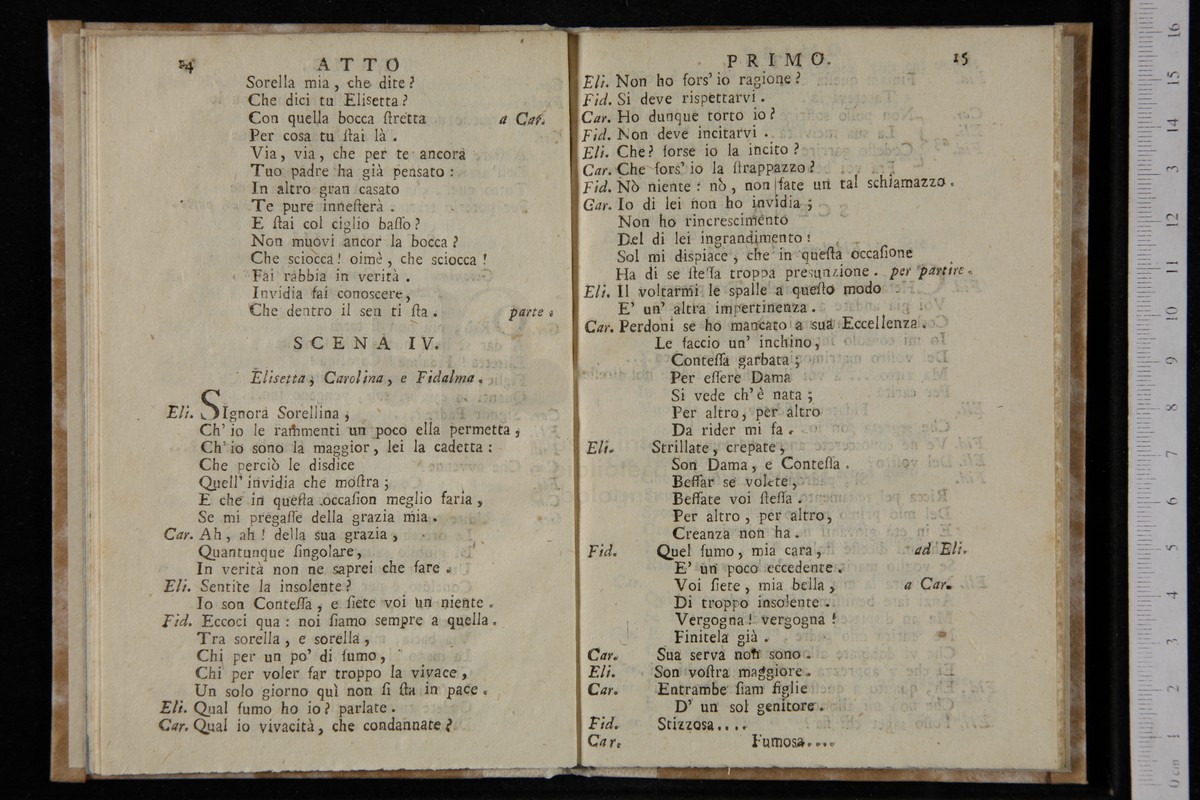 14 ATTO
Sorella mia, che dite?
Che dici tu Elisetta?
Con quella bocca ſtretta a Car.
Per cosa tu ſtai là.
Via, via, che per te ancora
Tuo padre ha già pensato:
In altro gran casato
Te pure inneſterà.
E ſtai col ciglio baſſo?
Non muovi ancor la bocca?
Che sciocca! oimè, che sciocca!
Fai rabbia in verità.
Invidia fai conoscere,
Che dentro il sen ti ſta. parte.
SCENA IV.
Elisetta, Carolina, e Fidalma.
Eli. SIgnora Sorellina,
Ch' io le rammenti un poco ella permetta,
Ch' io sono la maggior, lei la cadetta:
Che perciò le disdice
Quell' invidia che moſtra;
E che in queſta occaſion meglio faria,
Se mi pregaſſe della grazia mia.
Car. Ah, ah! della sua grazia,
Quantunque ſingolare,
In verità non ne saprei che fare.
Eli. Sentite la insolente?
Io son Conteſſa, e ſiete voi un niente.
Fid. Eccoci qua: noi ſiamo sempre a quella.
Tra sorella, e sorella,
Chi per un po' di fumo,
Chi per voler far troppo la vivace,
Un solo giorno quì non ſi ſta in pace.
Eli. Qual fumo ho io? parlate.
Car. Qual io vivacità, che condannate?
PRIMO. 15
Eli. Non ho fors' io ragione?
Fid. Si deve rispettarvi.
Car. Ho dunque torto io?
Fid. Non deve incitarvi.
Eli. Che? forse io la incito?
Car. Che fors' io la ſtrappazzo?
Fid. Nò niente: nò, non fate un tal schiamazzo.
Car. Io di lei non ho invidia;
Non ho rincrescimento
Del di lei ingrandimento:
Sol mi dispiace, che in queſta occaſione
Ha di se ſteſſa troppa presunzione. per partire.
Eli. Il voltarmi le spalle a queſto modo
E' un' altra impertinenza.
Car. Perdoni se ho mancato a sua Eccellenza.
Le faccio un' inchino,
Conteſſa garbata;
Per eſſere Dama
Si vede ch' è nata;
Per altro, per altro
Da rider mi fa.
Eli. Strillate, crepate,
Son Dama, e Conteſſa.
Beffar se volete,
Beffate voi ſteſſa.
Per altro, per altro,
Creanza non ha.
Fid. Quel fumo, mia cara, ad Eli.
E' un poco eccedente.
Voi ſiete, mia bella, a Car.
Di troppo insolente.
Vergogna! vergogna!
Finitela già.
Car. Sua serva non sono.
Eli. Son voſtra maggiore.
Car. Entrambe ſiam figlie
D' un sol genitore.
Fid. Stizzosa....
Car. Fumosa....